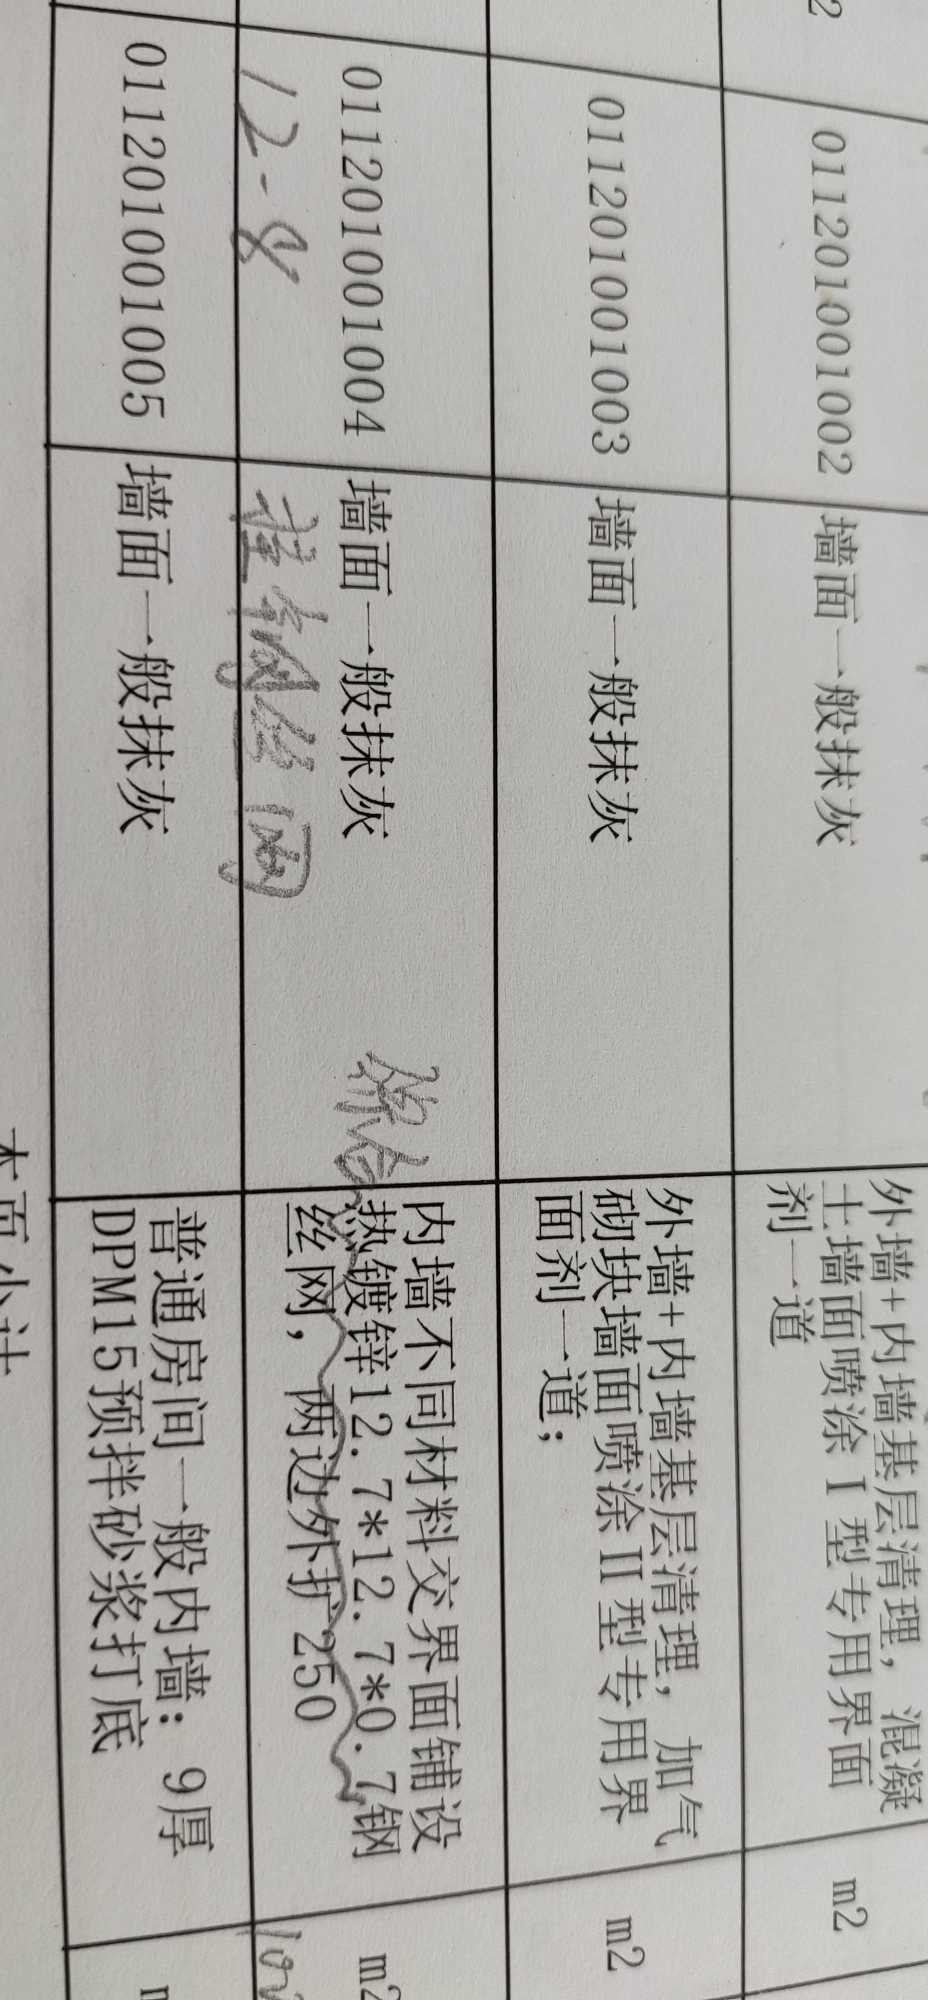 011201001002
墙面一般抹灰
外墙+内墙基层清理，混凝
土墙面喷涂I型专用界面
剂一道
m2
011201001003
墙面一般抹灰
外墙+内墙基层清理，加气
砌块墙面喷涂II型专用界
面剂一道；
m2
011201001004
12-8
墙面一般抹灰
挂钢丝网
内墙不同材料交界面铺设
热镀锌12.7*12.7*0.7钢
丝网，两边外扩250
m2
011201001005
墙面一般抹灰
普通房间一般内墙：9厚
DPM15预拌砂浆打底
本页小计